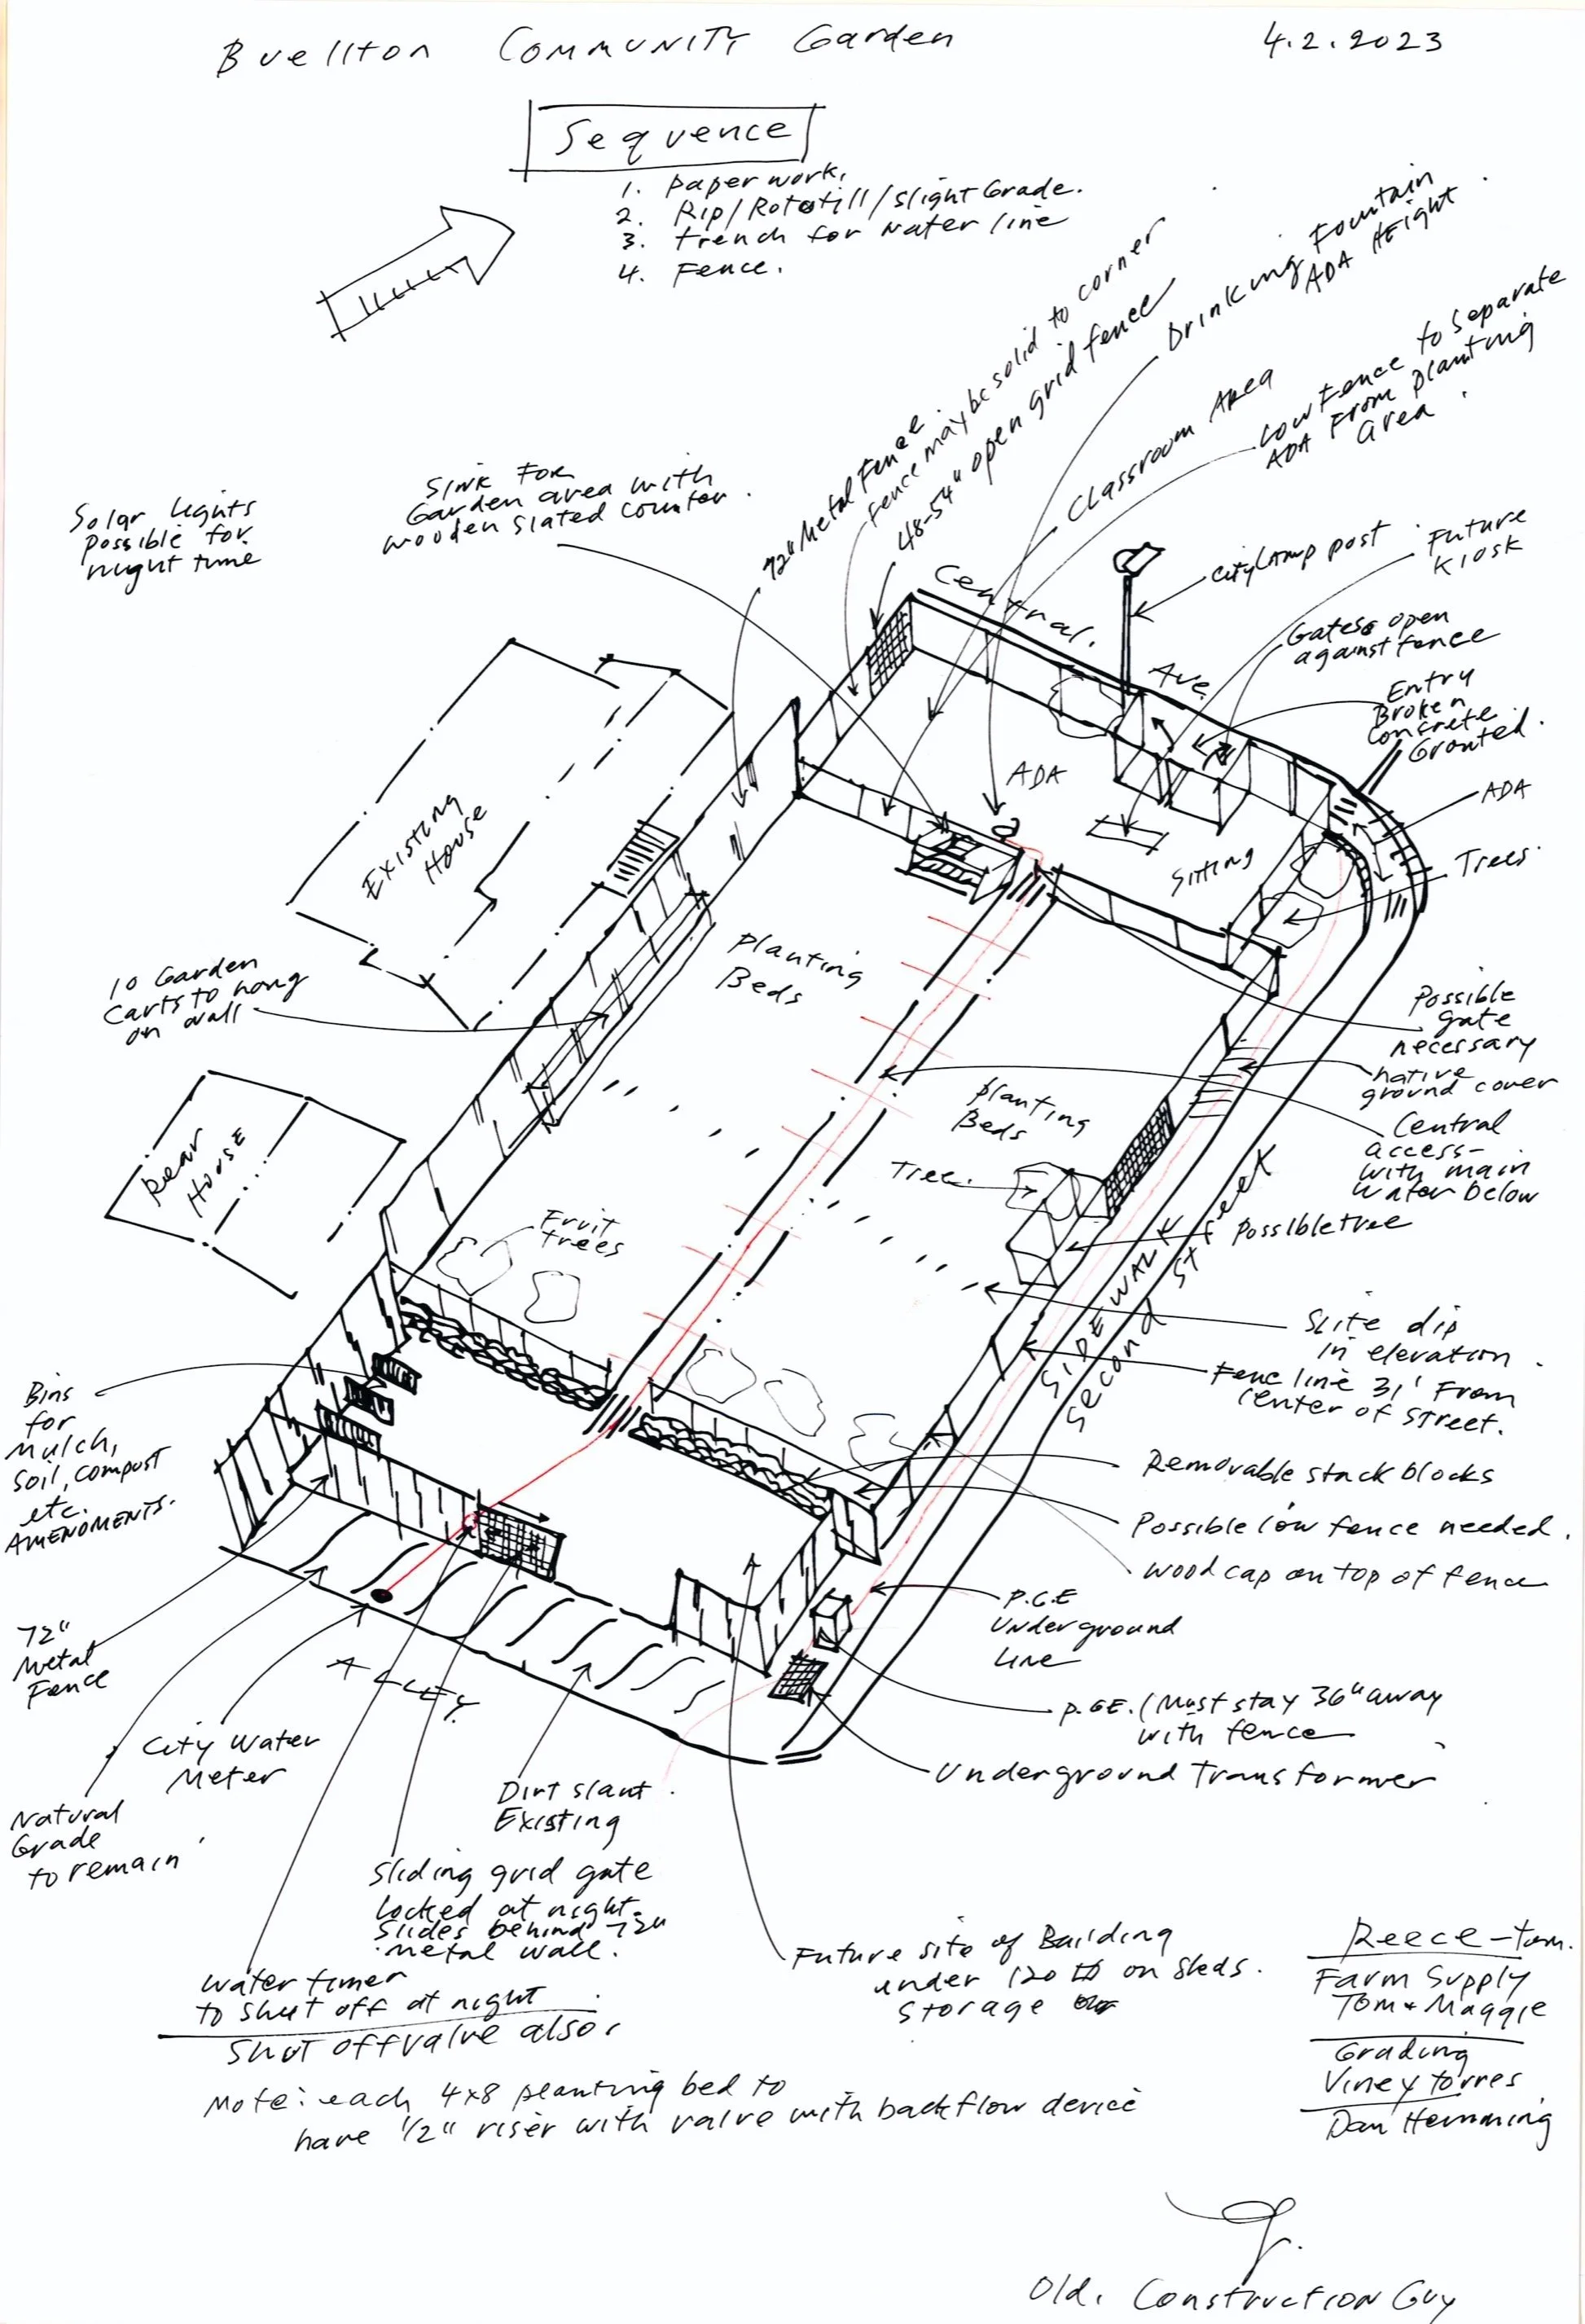 Buellton Community Garden
4.2.2023
Sequence
1. paper work.
2. Rip/Rototill/slight Grade.
3. trench for water line
4. Fence.
Drinking Fountain
ADA Height
72" Metal Fence.
fence may be solid to corner
48-54" open grid fence
Classroom Area
Low Fence to Separate
ADA From planting
area.
Sink For
Garden area with
wooden slated counter.
Solar Lights
possible for
night time
Central.
Ave.
City Lamp post
Future
Kiosk
Gates open
against fence
Entry
Broken
Concrete.
Grouted.
ADA
ADA
Trees
Sitting
Existing
House
10 Garden
Carts to hang
on wall
Planting
Beds
Possible
gate
necessary
native
ground cover
Central
access-
with main
water below
planting
Beds
Tree.
Possible tree
Rear
House
Fruit
Trees
SIDEWALK
Second Street
Slite dip
in elevation.
Fence line 31' From
Center of street.
Removable stack blocks
Possible low fence needed.
Wood cap on top of fence
Bins
for
Mulch,
Soil, compost
etc.
AMENDMENTS.
72"
Metal
Fence
P.G.E
Underground
Line
P.GE. (Must stay 36" away
with fence
Underground Transformer
ALLEY.
City Water
Meter
Natural
Grade
to remain
Dirt slant.
Existing
Sliding grid gate
Locked at night.
Slides behind 72"
metal wall.
Water timer
to shut off at night
Shut off valve also.
Future site of Building
under 120 on sleds.
Storage
Reece-Tom.
Farm Supply
Tom + Maggie
Grading
Viney Torres
Dan Hemming
Note: each 4x8 planting bed to
have 1/2" riser with valve with backflow device
Old. Construction Guy